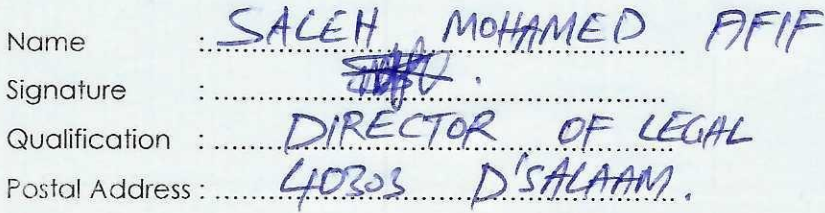 Name : SALEH MOHAMED AFIF
Signature :
Qualification : DIRECTOR OF LEGAL
Postal Address : 40303 D'SALAAM.